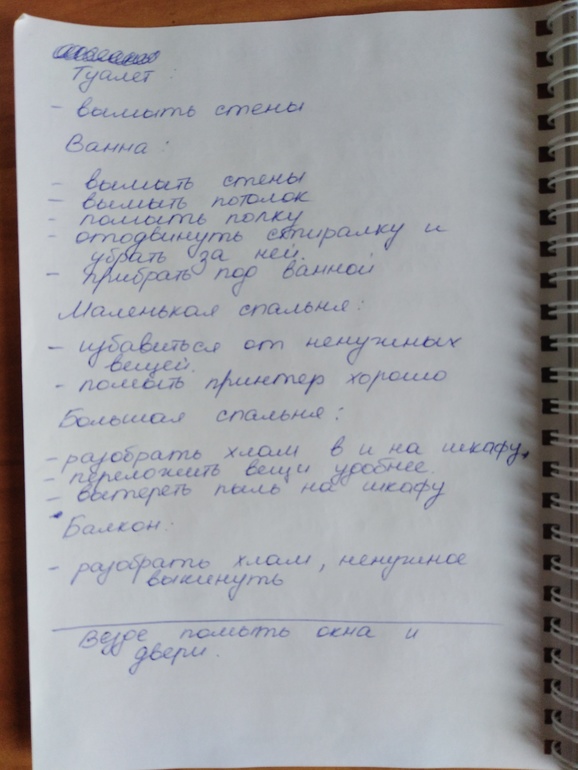 Туалет:
- вымыть стены
Ванна:
- вымыть стены
- вымыть потолок
- помыть полку
- отодвинуть стиралку и
убрать за ней.
- прибрать под ванной
Маленькая спальня:
- избавиться от ненужных
вещей.
- помыть принтер хорошо
Большая спальня:
- разобрать хлам в и на шкафу,
- переложить вещи удобнее.
- вытереть пыль на шкафу
Балкон:
- разобрать хлам, ненужное
выкинуть
Везде помыть окна и
двери.